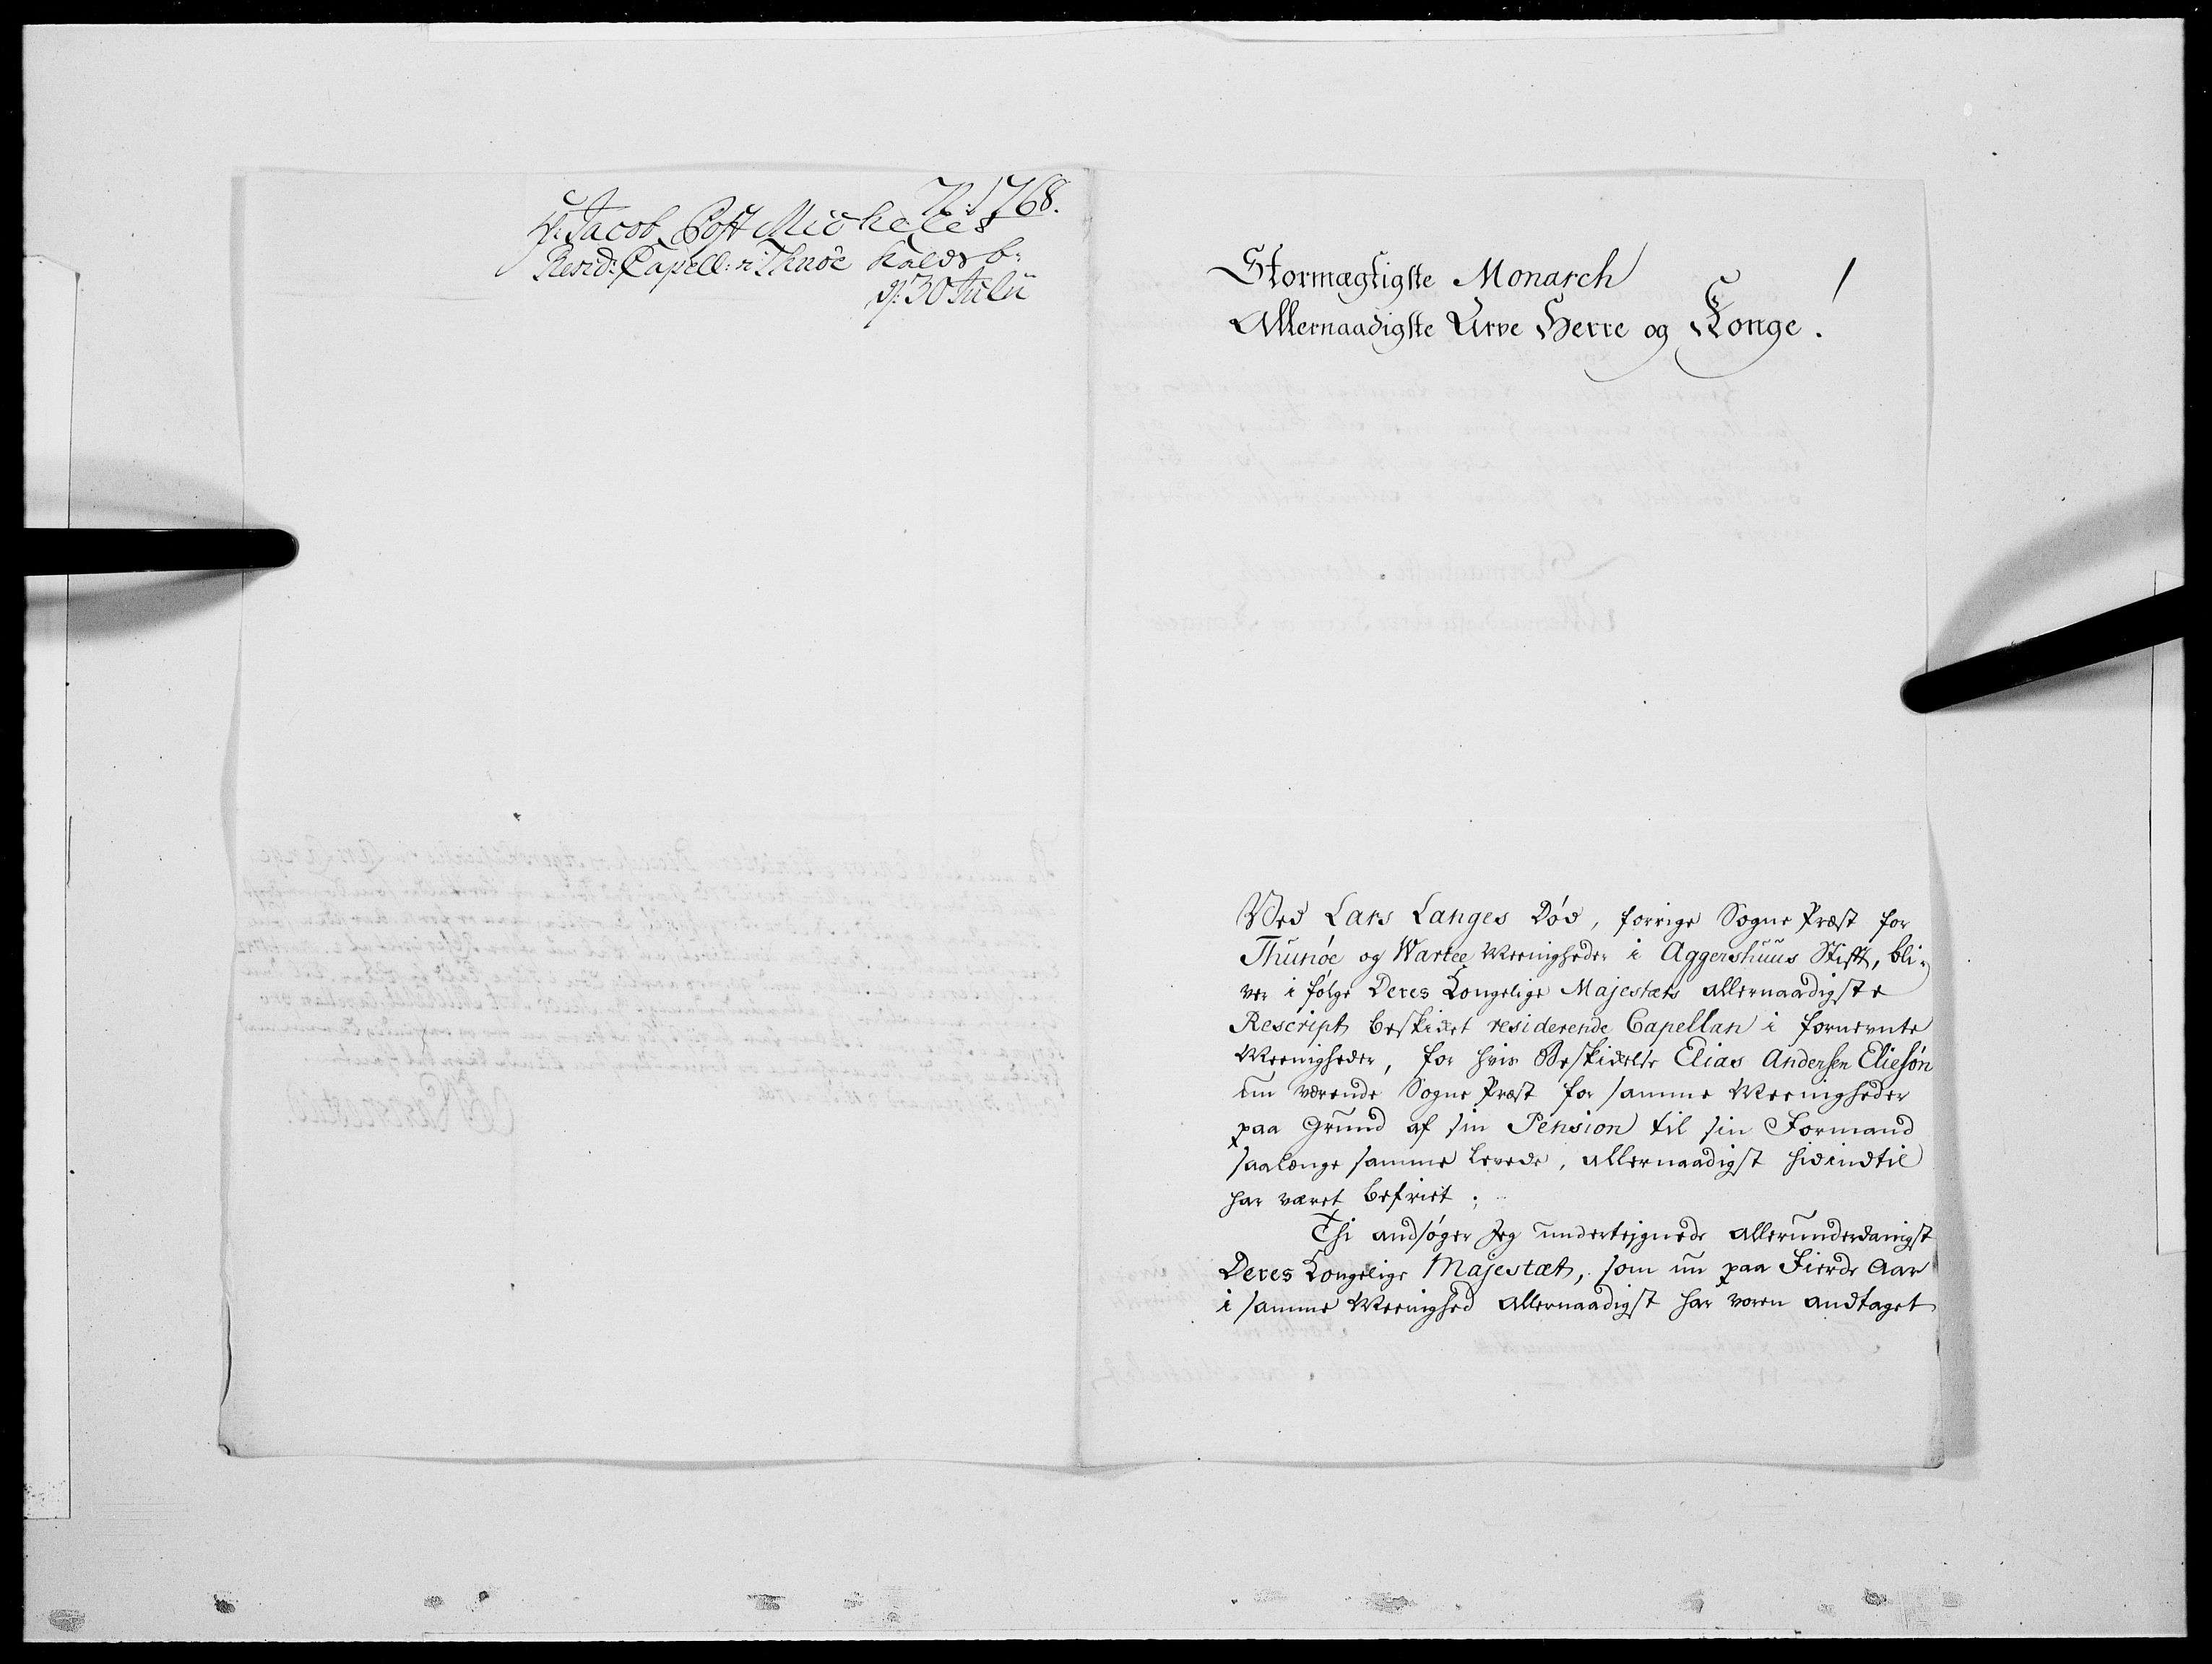 N: 1768.
H: Jacob Post Michelet
Resid: Capell: i Thnöe Kalds b:
d: 30 Julii
Stormægtigste Monarch
Allernaadigste Arve Herre og Konge. !
Ved Lars Langes Död, forrige Sogne Præst for
Thunöe og Wartee Meenigheder i Aggershuus Stift, bli-
ver i fölge Deres Kongelige Majestæts allernaadigste
Rescript beskicket residerende Capellan i fornevnte
Meenigheder, for hvis Beskickelse Elias Andersen Eliesön
nu værende Sogne Præst for samme Meenigheder
paa Grund af sin Pension til sin Formand
saalænge samme levede, allernaadigst hidindtil
har været befriet;
Thi andsöger Jeg undertejgnede allerunderdanigst
Deres Kongelige Majestæt, som nu paa Fierde Aar
i samme Meenighed allernaadigst har voren andtaget